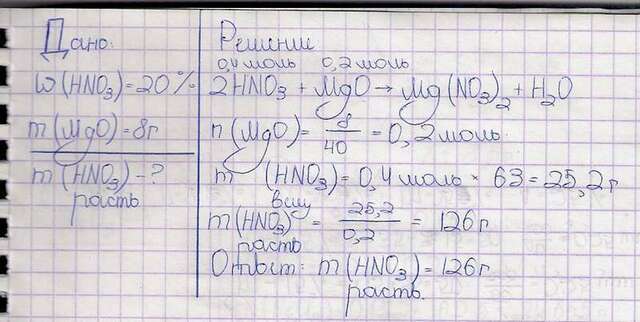 Дано:
w(HNO₃)=20%
m(MgO)=8г
m(HNO₃)-?
раств
Решение
0,4моль 0,2моль
2HNO₃ + MgO → Mg(NO₃)₂ + H₂O
n(MgO)= 8/40 =0,2моль.
m (HNO₃)=0,4моль * 63=25,2г
вещ
m(HNO₃) = 25,2/0,2 = 126г
раств
Ответ: m(HNO₃)=126г
раств.